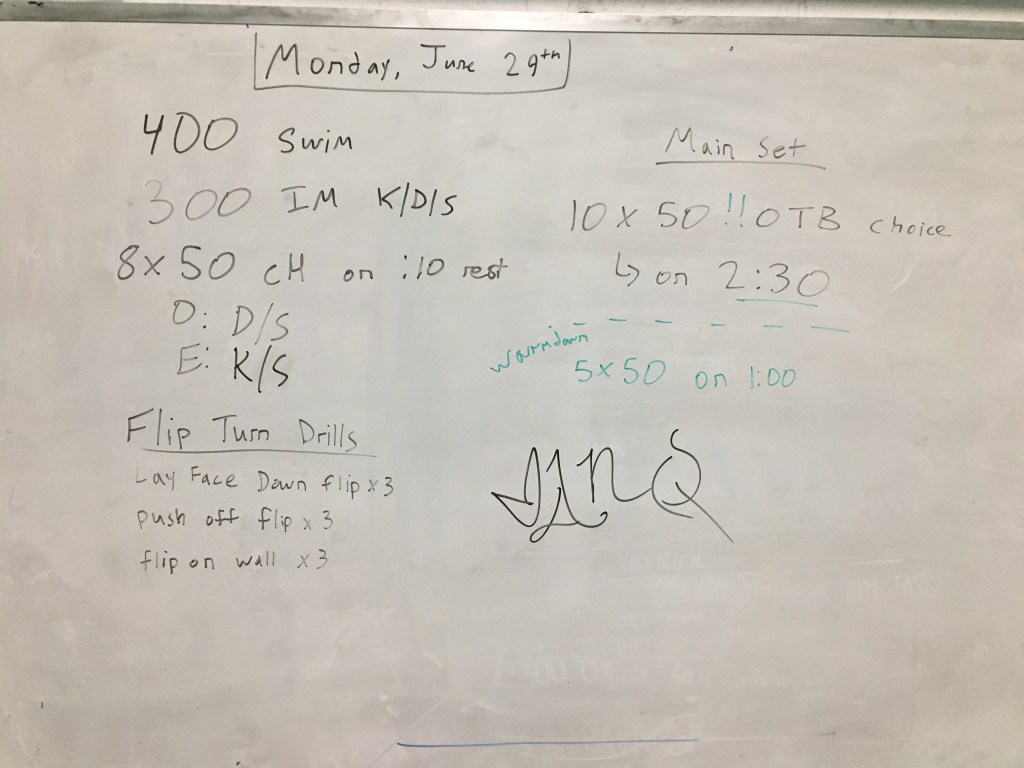 Monday, June 29th
400 Swim
300 IM K/D/S
8x50 cH on :10 rest
O: D/S
E: K/S
Flip Turn Drills
Lay Face Down flip x3
push off flip x 3
flip on wall x3
Main Set
10 x 50 !! OTB choice
↳ on 2:30
warmdown
5x50 on 1:00